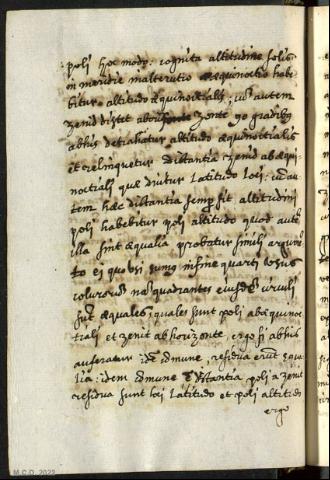 polj hoc modo: cognita altitudine solis
in meridie in alterutro æquinoctio habe
bitur altitudo æquinoctialis; cũ autem
zenid distet ab horizonte 90 gradibꝰ
ab his detrahatur altitudo æquinoctialis
et relinquetur distantia zenid ab æqui
noctialj quæ dicitur latitudo locj: cũ au
tem hæc distantia semp sit altitudinj
polj habebitur polj altitudo quod autẽ
illa sint æqualia probatur similj argumẽ
to ei quo usi sumꝰ in fine quartj
colurorũ nã quadrantes eiusdẽ circulj
sunt æquales; quales sunt polj ab æquinoc
tialj et zenit ab horizonte, ergo si ab his
auferatur idẽ cõmune, residua erũt æqua
lia: idem cõmune ẽ distantia polj a zenit
residua sunt locj latitudo et polj altitudo
ergo
M.C.D. 2022